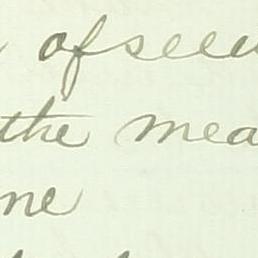 of seen
the mea
ne